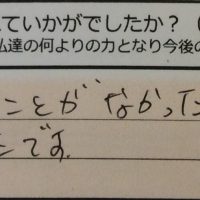 ていかがでしたか？（
私達の何よりの力となり今後の
ことが なかった
です。